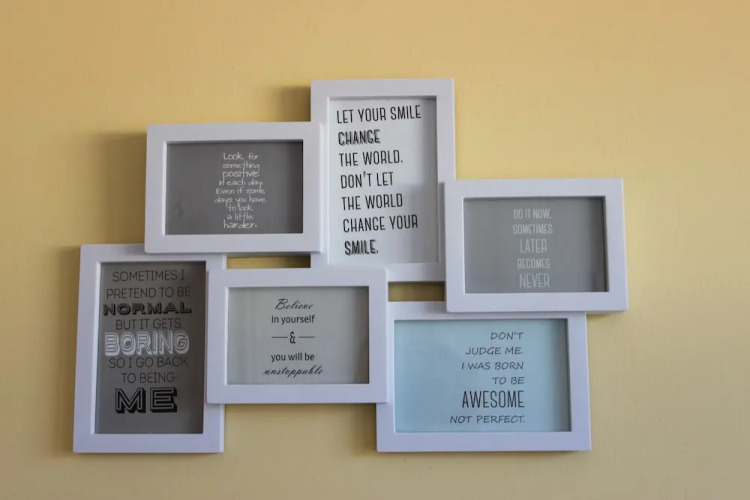 Look for
something
positive
in each day.
Even if some
days you have
to look
a little
harder.
LET YOUR SMILE
CHANGE
THE WORLD.
DON'T LET
THE WORLD
CHANGE YOUR
SMILE.
DO IT NOW.
SOMETIMES
LATER
BECOMES
NEVER
SOMETIMES I
PRETEND TO BE
NORMAL
BUT IT GETS
BORING
SO I GO BACK
TO BEING
ME
Believe
in yourself
&
you will be
unstoppable
DON'T
JUDGE ME.
I WAS BORN
TO BE
AWESOME
NOT PERFECT.